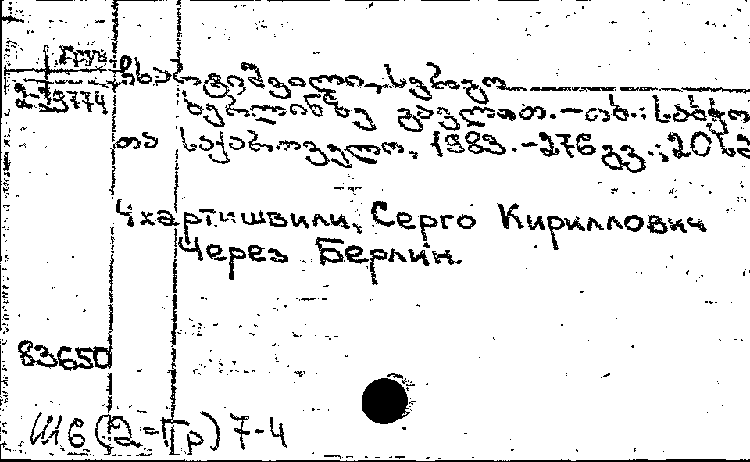 Груз
2-3774
ჩხარტიშვილი, სერგო
ბერლინზე გავლით. – თბ.: საბჭო
თა საქართველო, 1983. – 276 გვ.; 20 სმ
Чхартишвили, Серго Кириллович
Через Берлин.
83650
Ш6(2=Гр)7-4